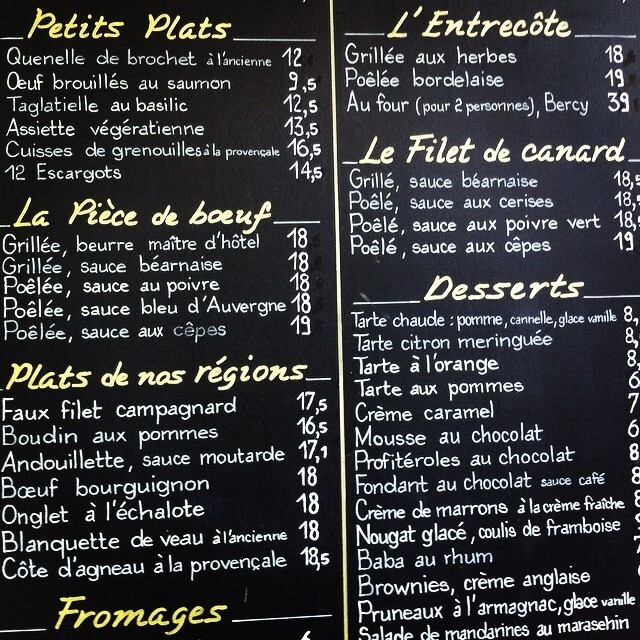 Petits Plats
Quenelle de brochet à l'ancienne 12
Œuf brouillés au saumon 9,5
Taglatielle au basilic 12,5
Assiette végératienne 13,5
Cuisses de grenouilles à la provençale 16,5
12 Escargots 14,5
La Pièce de bœuf
Grillée, beurre maître d'hôtel 18
Grillée, sauce béarnaise 18
Poêlée, sauce au poivre 18
Poêlée, sauce bleu d'Auvergne 18
Poêlée, sauce aux cêpes 19
Plats de nos régions
Faux filet campagnard 17,5
Boudin aux pommes 16,5
Andouillette, sauce moutarde 17,1
Bœuf bourguignon 18
Onglet à l'échalote 18
Blanquette de veau à l'ancienne 18
Côte d'agneau à la provençale 18,5
Fromages
L'Entrecôte
Grillée aux herbes 18
Poêlée bordelaise 19
Au four (pour 2 personnes), Bercy 39
Le Filet de canard
Grillé, sauce béarnaise 18,5
Poêlé, sauce aux cerises 18,
Poêlé, sauce aux poivre vert 18,
Poêlé, sauce aux cêpes 19
Desserts
Tarte chaude : pomme, cannelle, glace vanille 8,
Tarte citron meringuée 8,
Tarte à l'orange 8,
Tarte aux pommes 6
Crème caramel 7
Mousse au chocolat 6
Profitéroles au chocolat 8
Fondant au chocolat sauce café 8
Crème de marrons à la crème fraîche
Nougat glacé, coulis de framboise
Baba au rhum
Brownies, crème anglaise
Pruneaux à l'armagnac, glace vanille
Salade de mandarines au marasehin